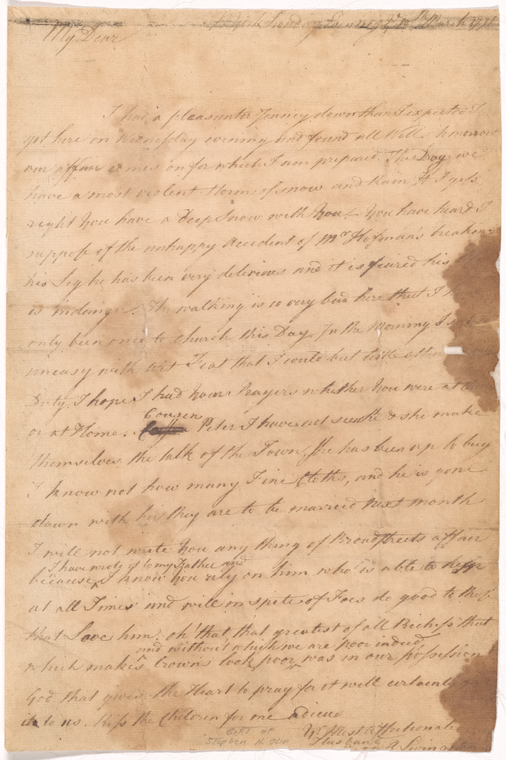 My Dear
I had a pleasanter Jurney down than I expected I
got here on Wednesday evening and found all Well. tomorrow
our affair comes on for which I am prepared. This Day we
have a most violent Storm of Snow and Rain & if I gess
right You have a deep Snow with You. You have heard I
suppose of the unhappy Accident of Mr Hofman's breaking
his Leg he has been very delirious and it is feared his
is in danger. The walking is so very bad here that I
only been once to church this Day. In the Morning I
uneasy with wet Feat that I could but
Duty. I hope I had Your Prayers whether You were at
or at Home. Couzen Peter I have not seen he & she make
themselves the talk of the Town, She has been up to buy
I know not how many Fine Cloths, and he is gone
down with her they are to be married next month
I will not write You any thing of Broadstreets affair
because I have wrote of to my Father and I know You rely on him who is able to help
at all Times and will in spite of Foes do good to those
that Love him. oh that that greatest of all Riches that
which makes Crowns look poor and without which we are poor indeed was in our possession
God that gives the Heart to pray for it will certainly
it to us. kiss the Children for me adieu
Yr Most Affectionate
Husband